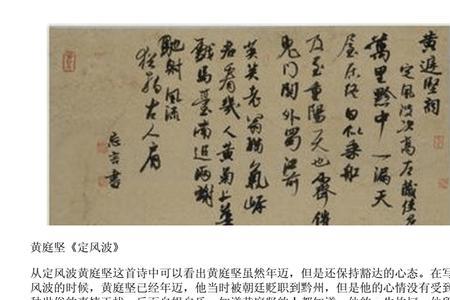 黄庭坚词
定风波次高左藏使君
萬里黔中一漏天
屋居终日似乘船
及至重陽天也霽
鬼門関外蜀江前
莫笑老翁猶氣岸
君看幾人黄菊上華
戲馬臺南追兩謝
馳射風流
猶拍古人肩
忘言書
黄庭坚《定风波》
从定风波黄庭坚这首诗中可以看出黄庭坚虽然年迈，但是还保持豁达的心态。在写
风波的时候，黄庭坚已经年迈，他当时被朝廷贬职到黔州，但是他的心情没有受到